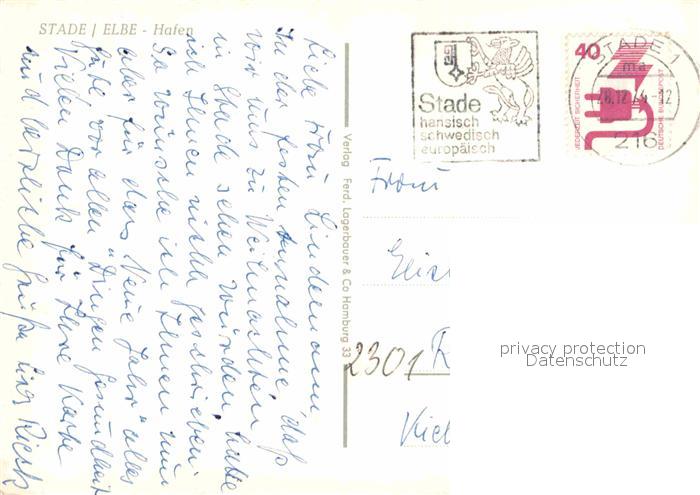 STADE / ELBE - Hafen
Liebe Frau Lindemann
In der festen Annahme, daß
wir uns zu Weihnachten
in Stade sehen würden, habe
ich Ihnen nicht geschrieben.
So wünsche ich Ihnen nun
aber für das Neue Jahr alles
Gute vor allen Dingen Gesundheit
Vielen Dank für Ihre Karte
und herzliche Grüße
Verlag Ferd. Lagerbauer & Co Hamburg 33
Stade
hansisch
schwedisch
europäisch
40
JEDERZEIT SICHERHEIT
DEUTSCHE BUNDESPOST
STADE 1
ma
216
Frau
2301
privacy protection
Datenschutz